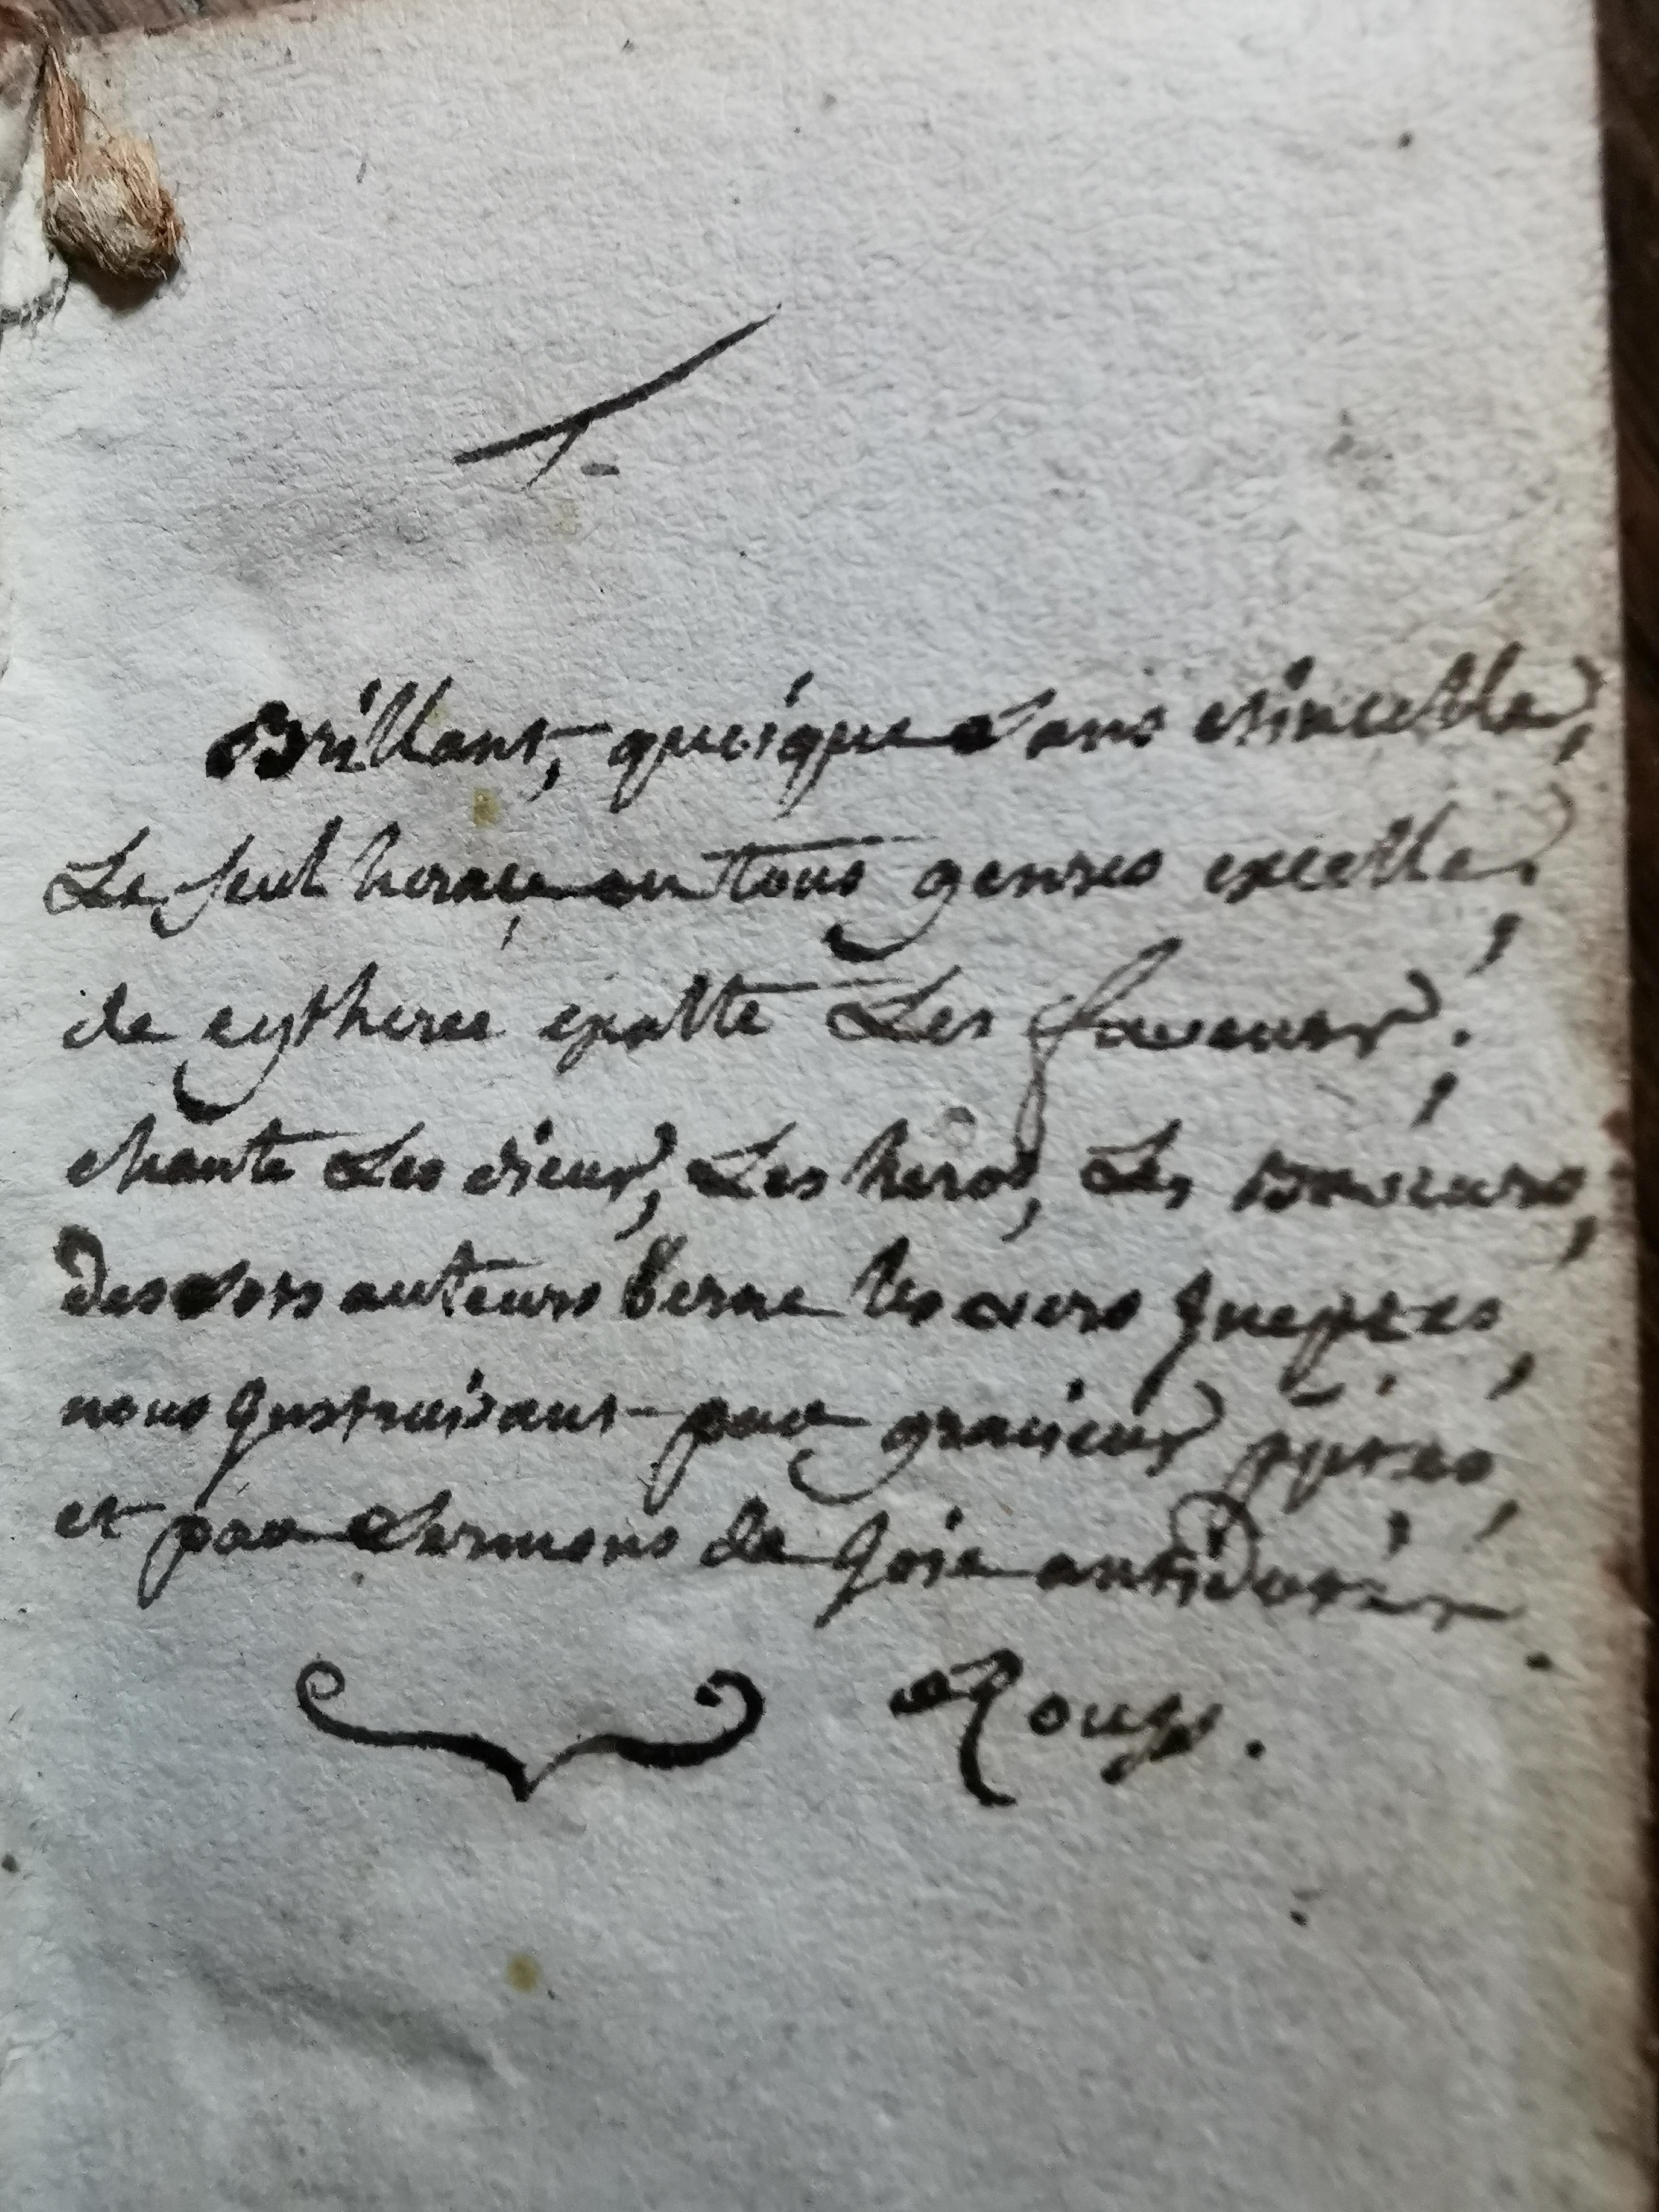 Brillant, quoique sans etincelle,
Le seul horace en tous genres excelle.
de cytherée exalte Les faveurs;
chante Les dieux, Les heros, Les Buveurs,
des sots auteurs berne les vers Ineptes,
nous Instruisant par gracieux
et par sermons de Joie antidotés.